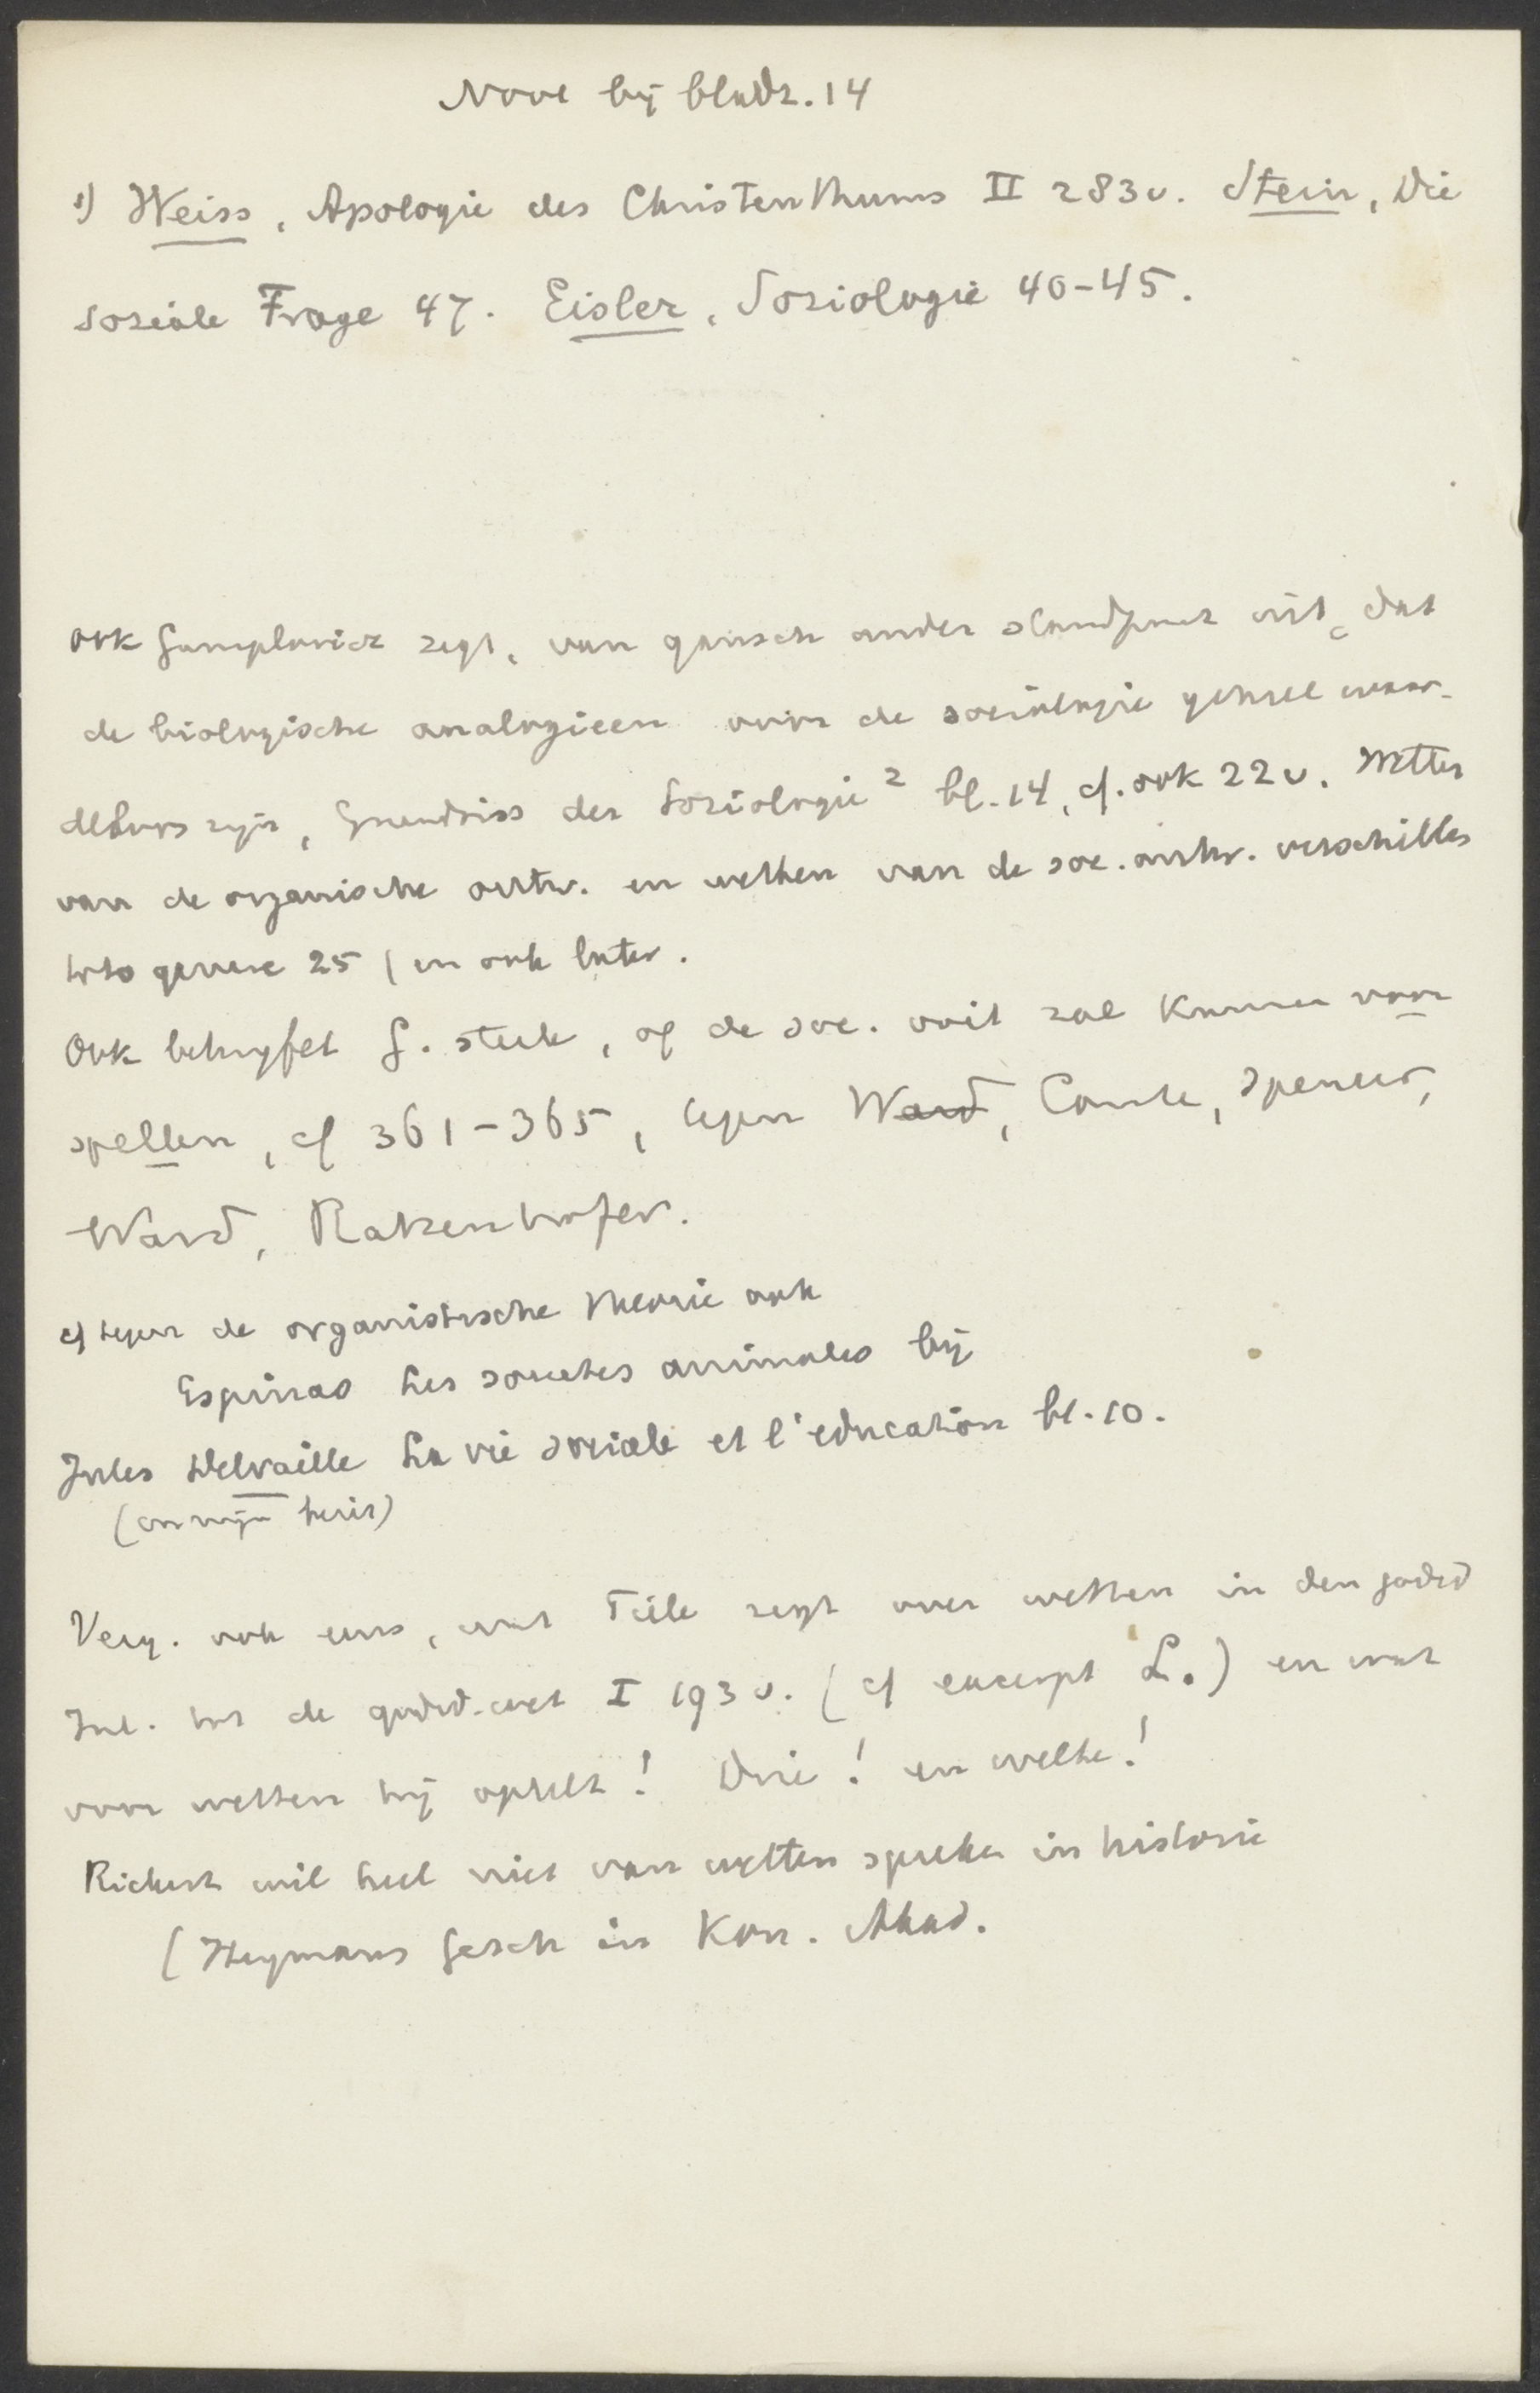 Noot bij bladz. 14
1) Weiss, Apologie des Christenthums II 283v. Stein, Die
soziale Frage 47. Eisler, Soziologie 40-45.
Ook Gumplovicz zegt, van gansch ander standpunt uit, dat
de biologische analogieen voor de sociologie geheel waar-
deloos zijn, Grundriss der Soziologie² bl. 14, cf. ook 22v. Wetten
van de organische ontw. en wetten van de soc. ontw. verschillen
toto genere 25 (en ook later.
Ook betwijfelt G. sterk, of de soc. ooit zal kunnen voor
spellen, cf 361-365, tegen Ward, Comte, Spencer,
Ward, Ratzenhofer.
cf tegen de organistische theorie ook
Espinas Les societes animales bij
Jules Delvaille La vie sociale et l'education bl. 10.
(in mijn bezit)
Verg. ook eens, wat Tiele zegt over wetten in den godsd
Inl. tot de godsd.wet I 193v. (cf excerpt L.) en wat
voor wetten hij opstelt! Drie! en welke!
Rickert wil heel niet van wetten spreken in historie
(Heymans Gesch in Kon. Akad.